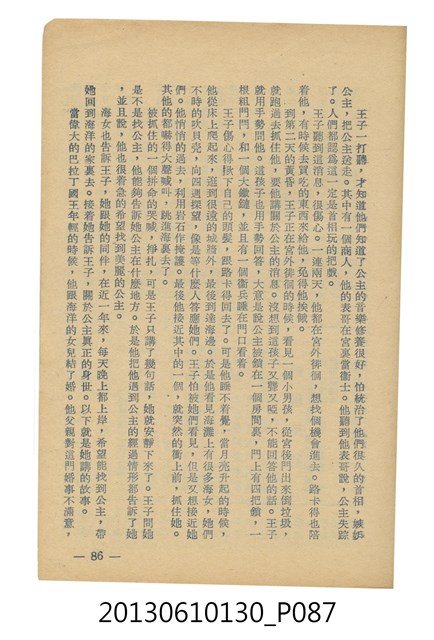 王子一打聽,才知道他們知道了公主的音樂修養很好,怕統治了他們很久的首相,嫉妬
公主,把公主送走。其中有一個商人,他的表哥在宮裏當衞士。他聽到他表哥說,公主失踪
了。人們都認爲這一定是首相玩的把戲。
王子聽到這消息,很傷心。一連兩天,他都在宮外徘徊,想找個機會進去。路卡得也陪
着他,有時候去買吃的東西來給他,免得他挨餓。
到第二天的黃昏,王子正在宮外徘徊的時候,看見一個小男孩,從宮後門出來倒垃圾,
就跑過去抓住他,要他講關於公主的消息。沒想到這孩子又聾又啞,不能回答他的話。王子
就用手勢問他。這孩子也用手勢回答,大意是說公主被鎖在一個房間裏,門上有四把鎖,一
根粗門閂,和一個大鐵鏈,並且有一個衞兵睡在門口看着。
王子傷心得揪下自己的頭髮,跟路卡得回去了。可是他睡不着覺,當月亮升起的時候,
他從床上爬起來,逛到很遠的城牆外,最後到達海邊。於是他看見海灘上有很多海女,她們
不時的吹貝壳,向四週探望,像是等什麼人答應她們。王子怕被她們看見,但是又想接近她
們。他悄悄的過去,利用岩石作掩護。最後他接近其中的一個,就突然的衝上前,抓住她。
其他的都嚇得大聲喊叫,跳進海裏去了。
被抓住的一個拼命的哭喊,掙扎,可是王子只講了幾句話,她就安靜下來了。王子問她
是不是找公主,他能夠告訴她公主在什麼地方。於是他把他遇到公主的經過情形都告訴了她
,並且說,他也很着急的希望找到美麗的公主。
海女也告訴王子,她跟她的同伴,在近一年來,每天晚上都上岸,希望能找到公主,帶
她回到海洋的家裏去。接着她告訴王子,關於公主眞正的身世。以下就是她講的故事。
當偉大的巴拉丁國王年輕的時候,他跟海洋的女兒結了婚。他父親對這門婚事不滿意,
— 86 —
20130610130_P087